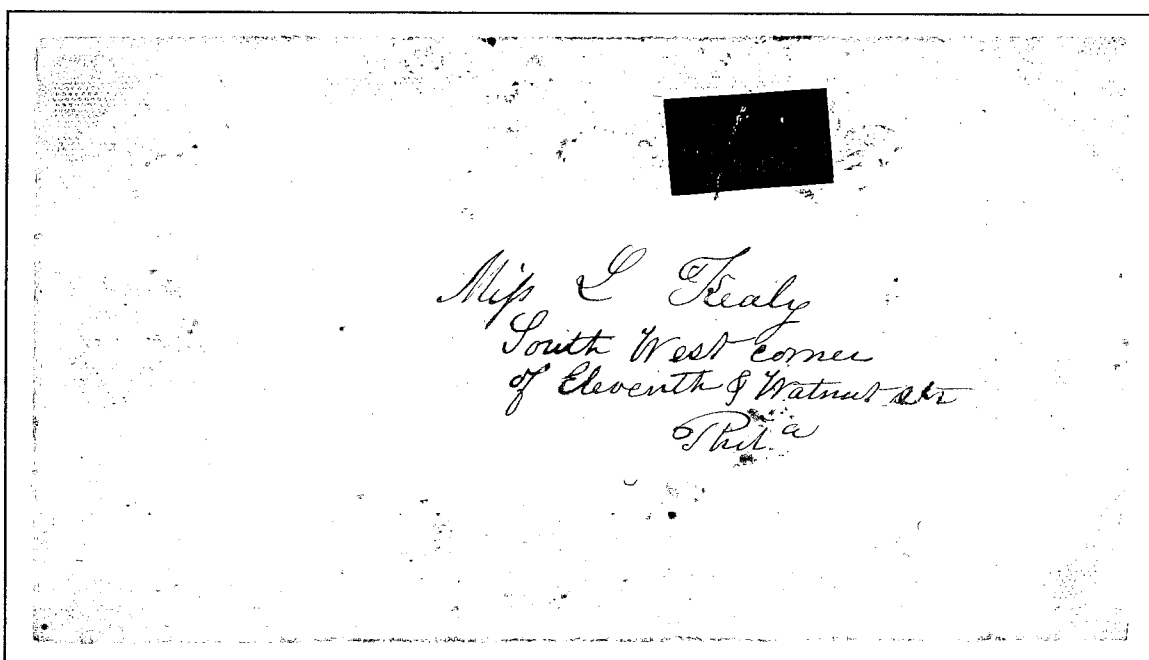 Miss L Kealy
South West corner
of Eleventh & Walnut str
Phil.a